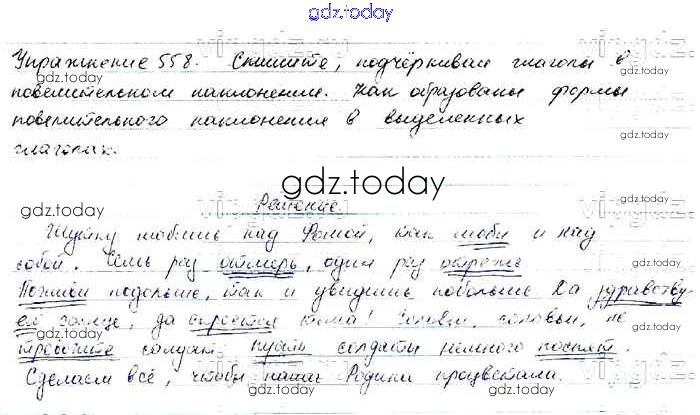 gdz.today
Упражнение 558. Спишите, подчёркивая глаголы в
gdz.today
повелительном наклонении. Как образованы формы
повелительного наклонения в выделенных
gdz.today
глаголах.
gdz.today
Решение.
gdz.today
Шутку любишь над Фомой, так люби и над
собой. Семь раз отмерь, один раз отрежь
gdz.today
Поживи подольше, так и увидишь побольше Да здравству-
ет солнце, да скроется тьма! Соловьи, соловьи, не
тревожте солдат, пусть солдаты немного поспят.
gdz.today
Сделаем всё, чтобы наша Родина процветала.